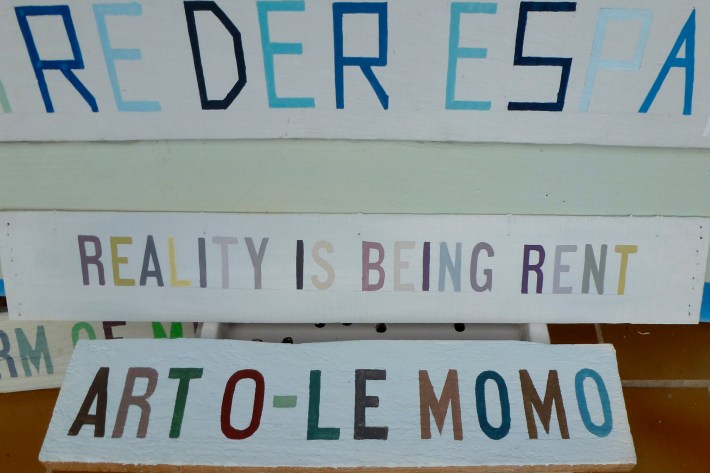 REDER ESPA
REALITY IS BEING RENT
RM OF M
ART O-LE MOMO